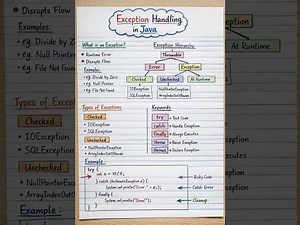 Exception Handling
in Java
What is an Exception?
• Runtime Error
• Disrupts Flow
Examples:
• eg. Divide by Zero
• eg. Null Pointer
• eg. File Not Found
Exception Hierarchy
Throwable
Error
Exception
Checked
Unchecked
At Runtime
IOException
SQLException
NullPointerException
ArrayIndexOutOfBounds
Types of Exceptions
Checked
• IOException
• SQLException
Unchecked
• NullPointerException
• ArrayIndexOutOfBounds
Keywords
try
→ Test Code
catch
→ Handle Exception
finally
→ Always Executes
throw
→ Raise Exception
throws
→ Declare Exception
Example:
try {
int a = 10/0;
} catch (ArithmeticException e) {
System.out.println("Error: " + e);
} finally {
System.out.println("Done");
}
Risky Code
Catch Error
Cleanup
• Disrupts Flow
Examples
• eg. Divide by Zero
• eg. Null Pointer
• eg. File Not Found
Types of Exceptions
Checked
• IOException
• SQLException
Unchecked
• NullPointerException
Example:
At Runtime